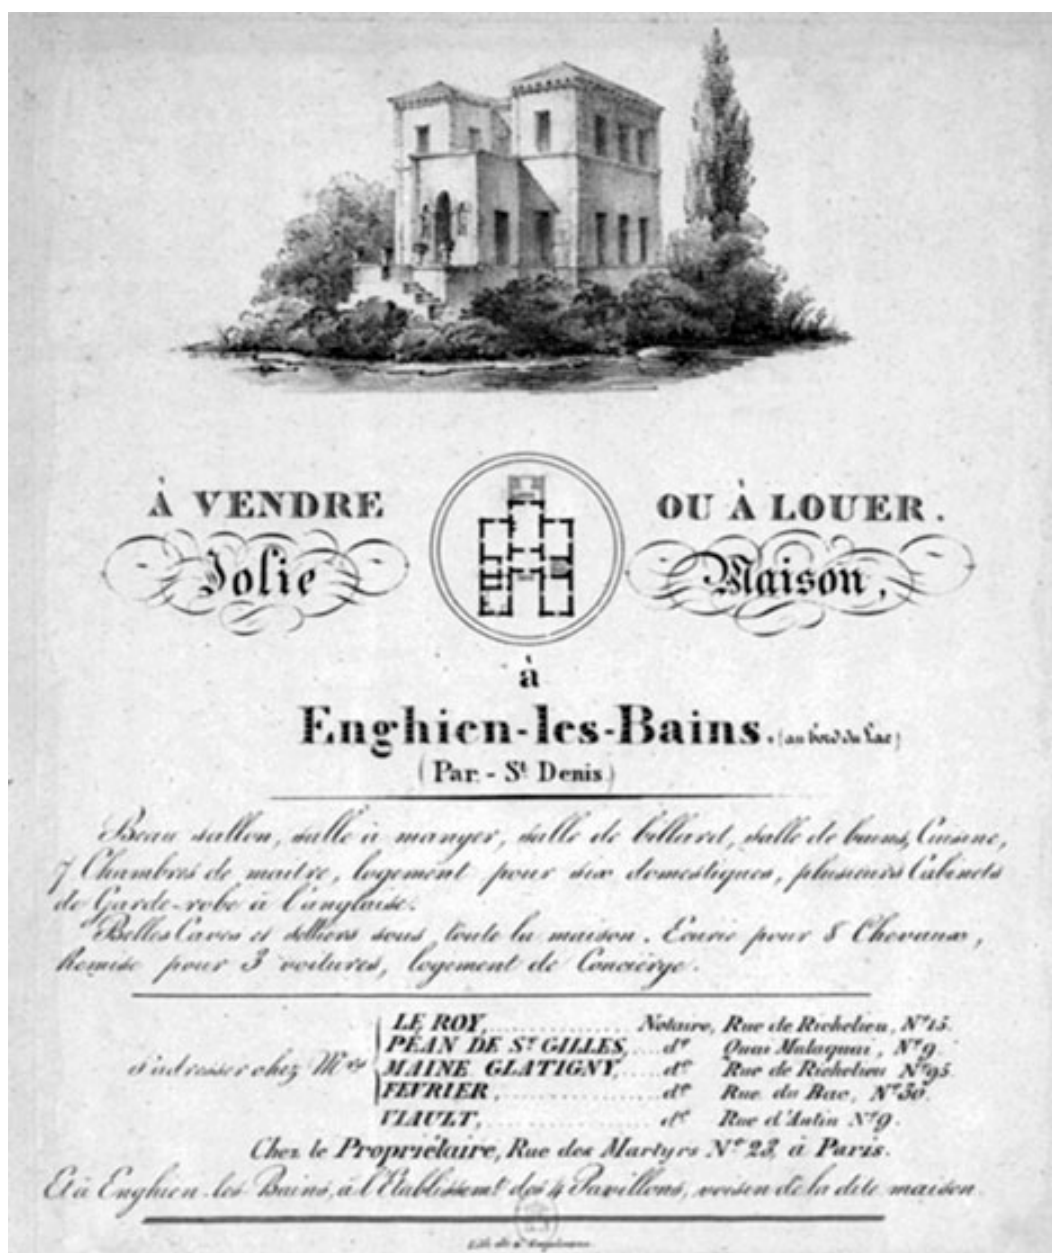 À VENDRE OU À LOUER.
Jolie Maison,
à
Enghien-les-Bains. (au bord du Lac)
(Par - St Denis)
Beau sallon, salle à manger, salle de billard, salle de bains, Cuisine,
7 Chambres de maitre, logement pour six domestiques, plusieurs Cabinets
de Garde-robe à l'anglaise.
Belles Caves et selliers sous toute la maison. Ecurie pour 8 Chevaux,
Remise pour 3 voitures, logement de Concièrge.
LE ROY, Notaire, Rue de Richelieu, No 15.
PÉAN DE ST GILLES, do Quai Malaquai, No 9.
s'adresser chez Mrs MAINE GLATIGNY, do Rue de Richelieu No 95.
FEVRIER, do Rue du Bac, No 30.
VIAULT, do Rue d'Antin No 9.
Chez le Propriétaire, Rue des Martyrs No 23, à Paris.
Et à Enghien-les-Bains, à l'Etablissemt des 4 Pavillons, voisin de la dite maison.
Lith. de